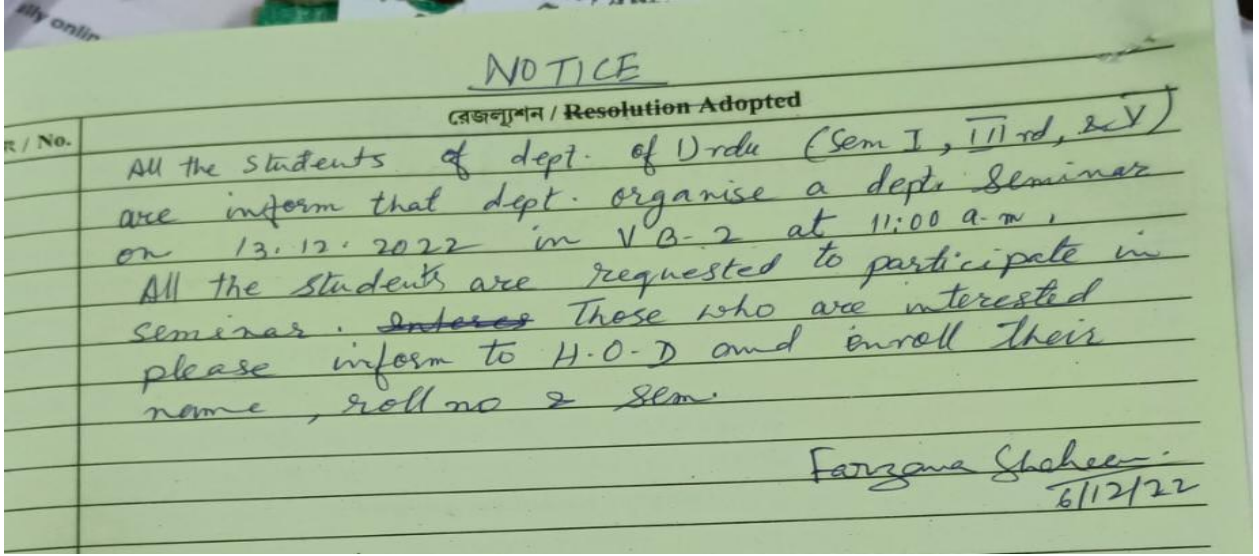 ally onlin
NOTICE
রেজল্যুশন / Resolution Adopted
/ No.
All the students of dept. of Urdu (Sem I, III rd, & V)
are inform that dept. organise a dept. Seminar
on 13.12.2022 in VB-2 at 11:00 a.m.
All the students are requested to participate in
seminar. Those who are interested
please inform to H.O.D and enroll their
name, roll no & sem.
Farzana Shaheen.
6/12/22